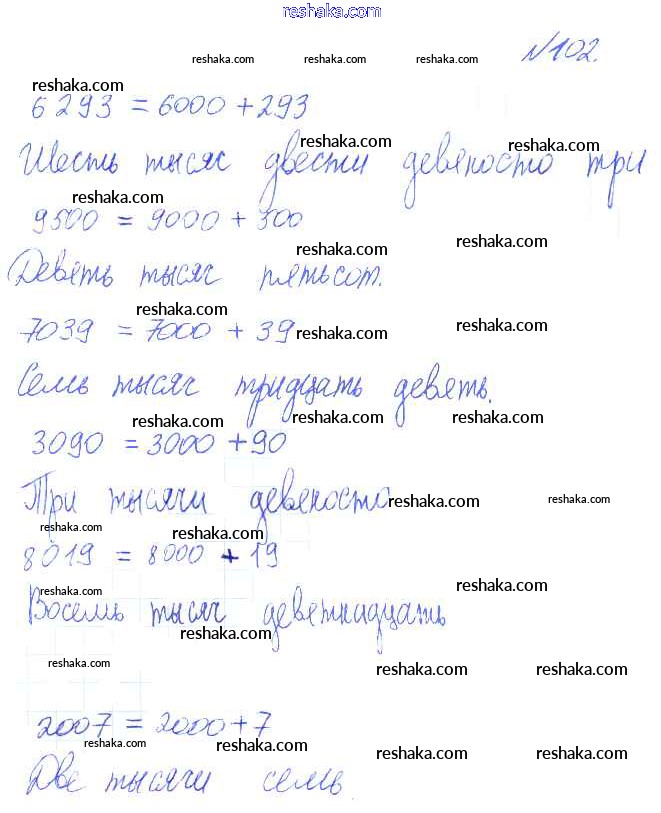 reshaka.com
№102.
reshaka.com reshaka.com reshaka.com
reshaka.com
6293 = 6000 + 293
reshaka.com reshaka.com
Шесть тысяч двести девяносто три
reshaka.com
9500 = 9000 + 500
reshaka.com reshaka.com
Девять тысяч пятьсот.
reshaka.com
7039 = 7000 + 39
reshaka.com reshaka.com
Семь тысяч тридцать девять.
reshaka.com reshaka.com reshaka.com
3090 = 3000 + 90
Три тысячи девяносто
reshaka.com reshaka.com
reshaka.com reshaka.com
8019 = 8000 + 19
reshaka.com reshaka.com
Восемь тысяч девятнадцать
reshaka.com
reshaka.com reshaka.com reshaka.com
2007 = 2000 + 7
reshaka.com reshaka.com reshaka.com reshaka.com
Две тысячи семь.